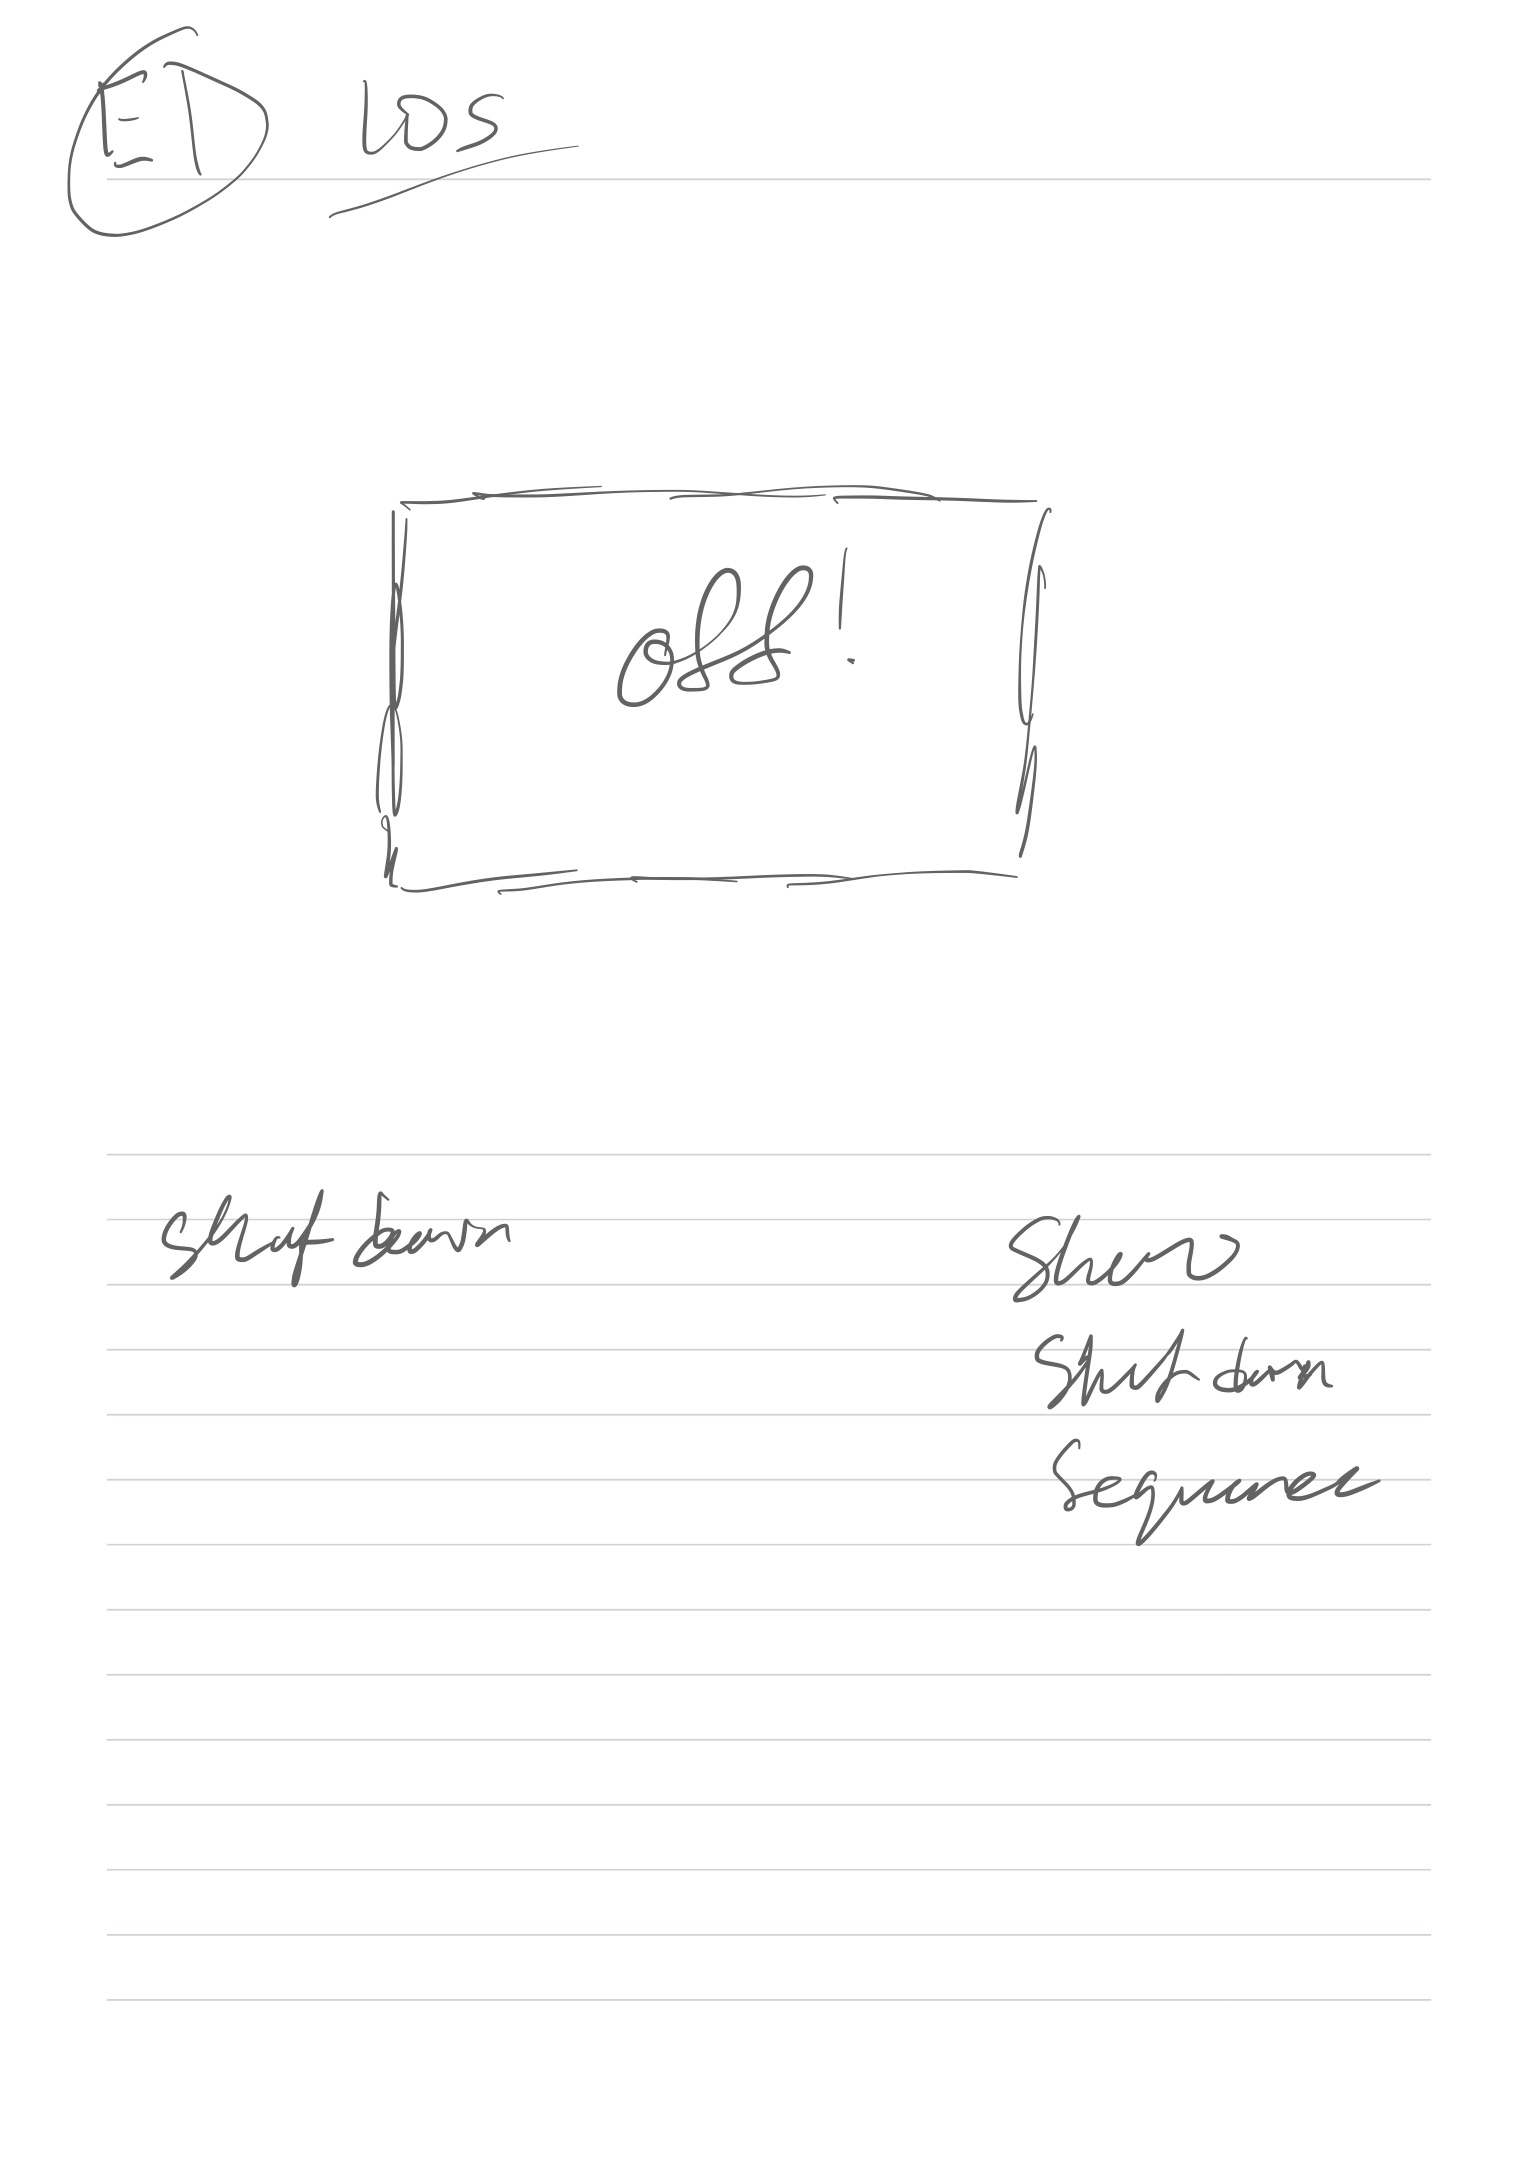 ED LOS
off!
Shut down
Show
Shut down
Sequence